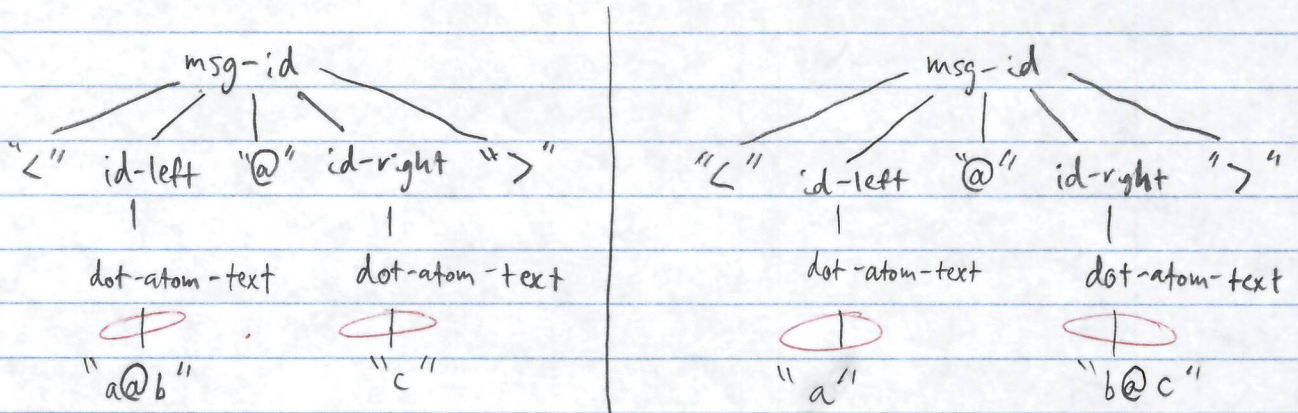 msg-id
"<" id-left "@" id-right ">"
dot-atom-text dot-atom-text
"a@b" "c"
msg-id
"<" id-left "@" id-right ">"
dot-atom-text dot-atom-text
"a" "b@c"